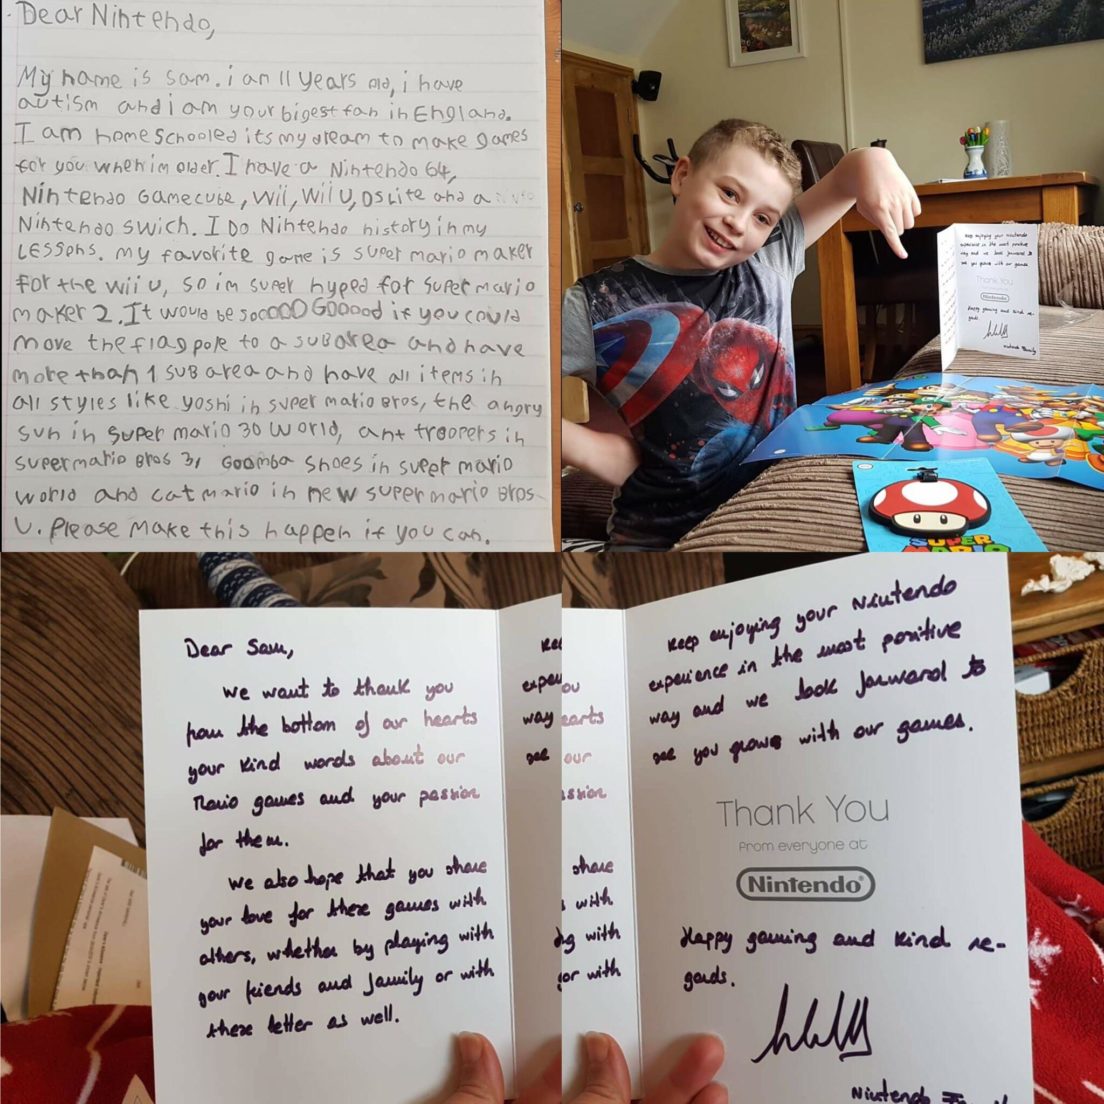 Dear Nintendo,
My name is sam. i an 11 years old, i have
autism and i am your bigest fan in England.
I am home schooled its my dream to make games
for you when im older. I have a Nintendo 64,
Nintendo Gamecube, Wii, Wii U, DS Lite and a
Nintendo swich. I Do Nintendo history in my
Lessons. my favorite game is super mario maker
for the wii u, so im super hyped for super mario
maker 2. It would be sooooo Gooood if you could
move the flag pole to a subarea and have
more than 1 sub area and have all items in
all styles like yoshi in super mario Bros, the angry
sun in super mario 3D World, ant troopers in
super mario Bros 3, Goomba shoes in super mario
world and cat mario in new super mario Bros
U. Please make this happen if you can.
Keep enjoying your Nintendo
experience in the most positive
way and we look forward to
see you grow with our games.
Thank You
Nintendo
Happy gaming and kind re-
gards.
Nintendo Family
SUPER
MARIO
Dear Sam,
We want to thank you
from the bottom of our hearts
your kind words about our
Mario games and your passion
for them.
We also hope that you share
your love for these games with
others, whether by playing with
your friends and family or with
these letter as well.
Kee
expe
way
see
ou
earts
our
ssion
share
with
ng with
or with
Keep enjoying your Nintendo
experience in the most positive
way and we look forward to
see you grow with our games.
Thank You
from everyone at
Nintendo
Happy gaming and kind re-
gards.
Nintendo